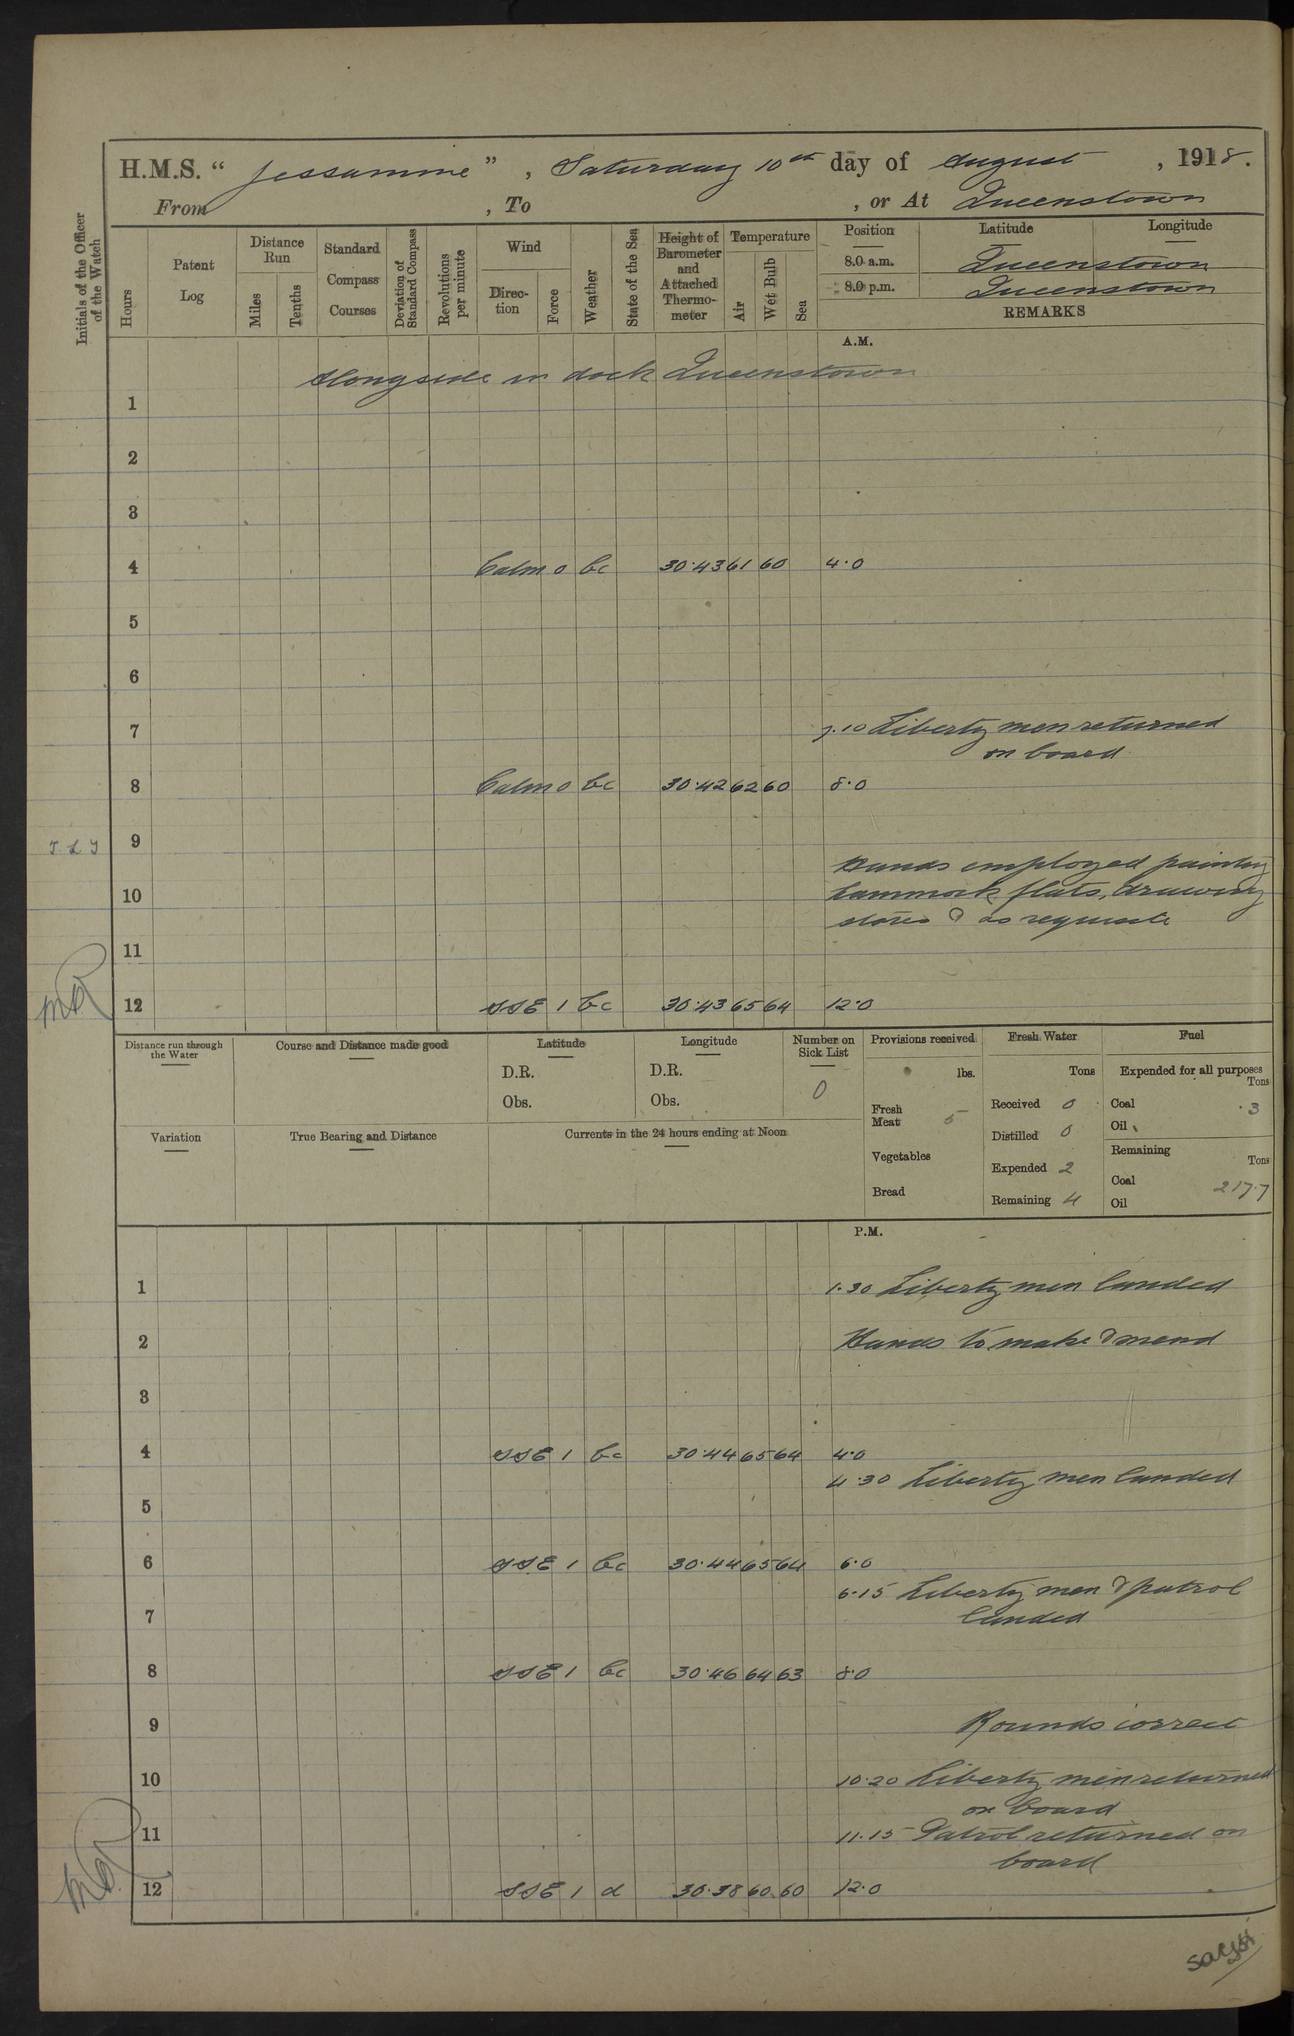 H.M.S. " Jessamine " , Saturday 10th day of August , 1918.
From , To , or At Queenstown
Initials of the Officer of the Watch
Hours
Patent Log
Distance Run
Miles
Tenths
Standard Compass Courses
Deviation of Standard Compass
Revolutions per minute
Wind
Direction
Force
Weather
State of the Sea
Height of Barometer and Attached Thermometer
Temperature
Air
Wet Bulb
Sea
Position Latitude Longitude
8.0 a.m. Queenstown
8.0 p.m. Queenstown
REMARKS
A.M.
Alongside in dock Queenstown
1
2
3
4 Calm 0 bc 30.43 61 60 4.0
5
6
7 7.10 Liberty men returned
on board
8 Calm 0 bc 30.42 62 60 8.0
9
Hands employed painting
10 hammock flats, drawing
stores & as requisite
11
12 SSE 1 bc 30.43 65 64 12.0
Distance run through the Water
Course and Distance made good
Latitude
D.R.
Obs.
Longitude
D.R.
Obs.
Number on Sick List
0
Provisions received
lbs.
Fresh Meat 5
Vegetables
Bread
Fresh Water
Tons
Received 0
Distilled 0
Expended 2
Remaining 4
Fuel
Expended for all purposes
Tons
Coal .3
Oil
Remaining
Tons
Coal 217.7
Oil
Variation
True Bearing and Distance
Currents in the 24 hours ending at Noon
P.M.
1 1.30 Liberty men landed
2 Hands to make & mend
3
4 SSE 1 bc 30.44 65 64 4.0
4.30 Liberty men landed
5
6 SSE 1 bc 30.44 65 64 6.0
6.15 Liberty men & patrol
7 landed
8 SSE 1 bc 30.46 64 63 8.0
9 Rounds correct
10 10.20 Liberty men returned
on board
11 11.15 Patrol returned on
board
12 SSE 1 d 30.38 60 60 12.0